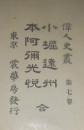 偉人史叢 第七卷
小堀遠州
本阿彌光悦
合
東京 裳華房發行